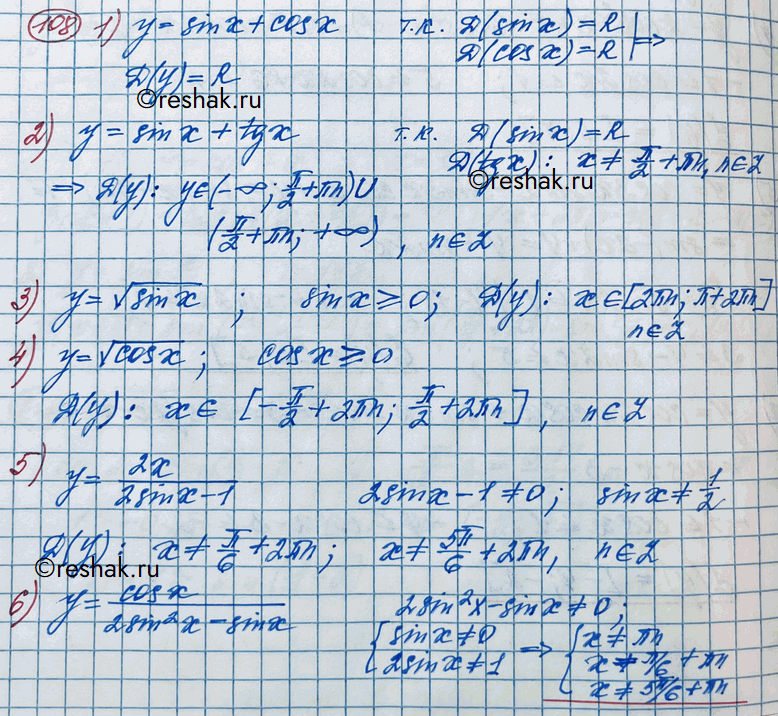 108 1) y = sin x + cos x т.к. D(sin x) = R
D(cos x) = R | =>
D(y) = R
©reshak.ru
2) y = sin x + tg x т.к. D(sin x) = R
D(tg x): x ≠ π/2 + πn, n∈Z
©reshak.ru
=> D(y): y∈(-∞; π/2 + πn)∪
(π/2 + πn; +∞), n∈Z
3) y = √sin x ; sin x ≥ 0; D(y): x∈[2πn; π+2πn]
n∈Z
4) y = √cos x ; cos x ≥ 0
D(y): x∈ [-π/2 + 2πn; π/2 + 2πn], n∈Z
5) y = 2x / (2sin x - 1) 2sin x - 1 ≠ 0; sin x ≠ 1/2
D(y): x ≠ π/6 + 2πn; x ≠ 5π/6 + 2πn, n∈Z
©reshak.ru
6) y = cos x / (2sin²x - sin x) 2sin²x - sin x ≠ 0;
{ sin x ≠ 0 => { x ≠ πn
2sin x ≠ 1 x ≠ π/6 + πn
x ≠ 5π/6 + πn